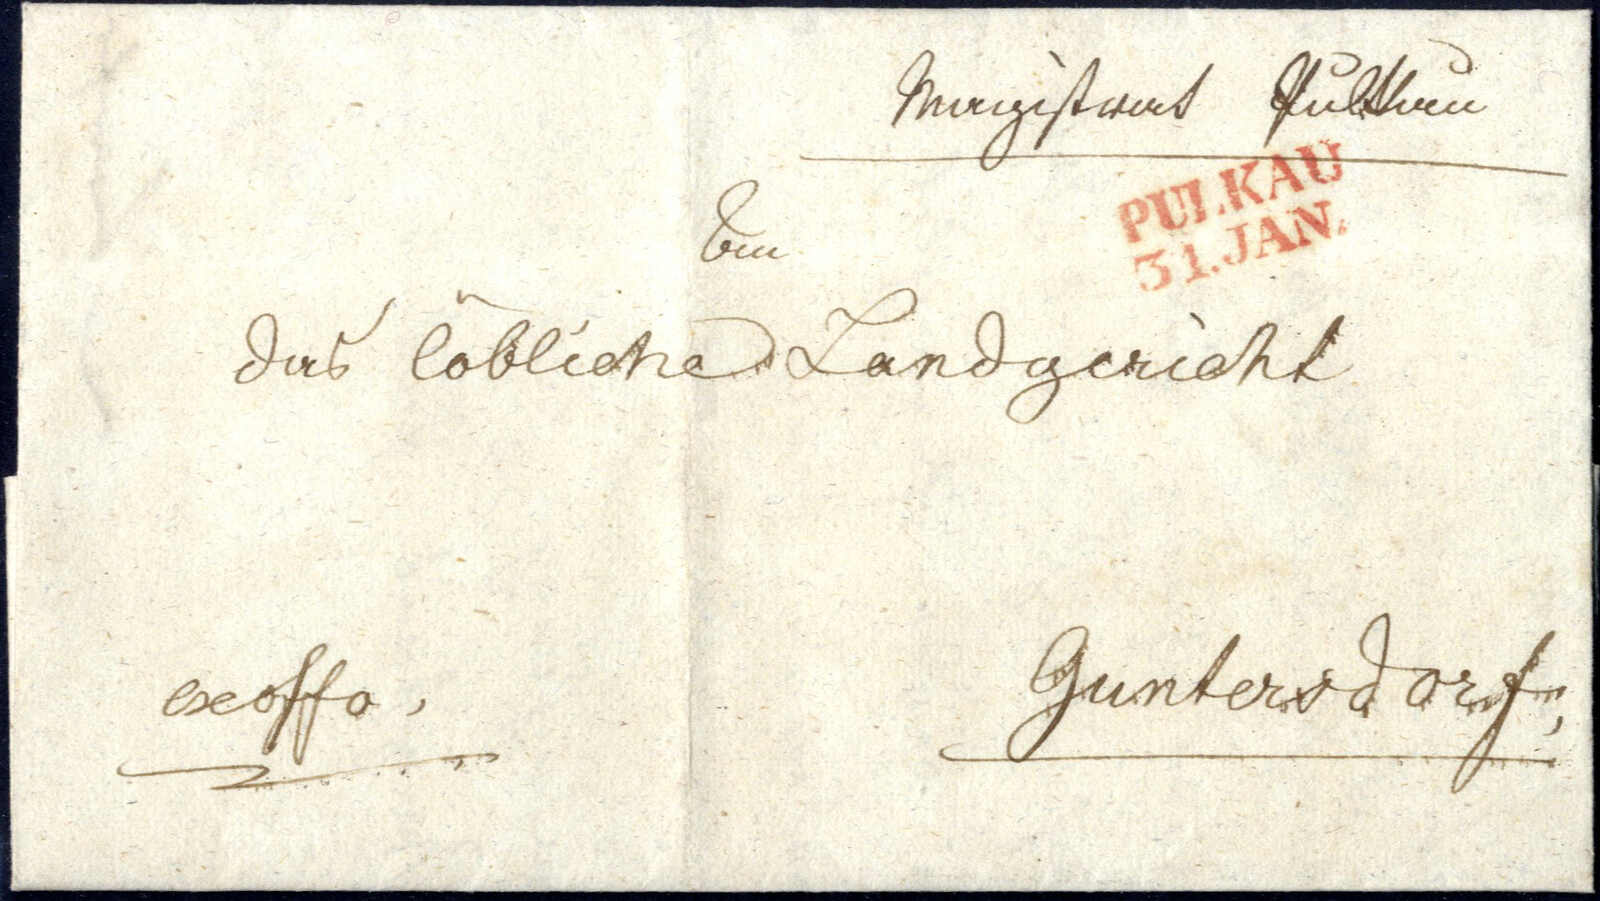 Magistrat Pulkau
PULKAU
31.JAN.
An
das löbliche Landgericht
exoffo,
Guntersdorf,